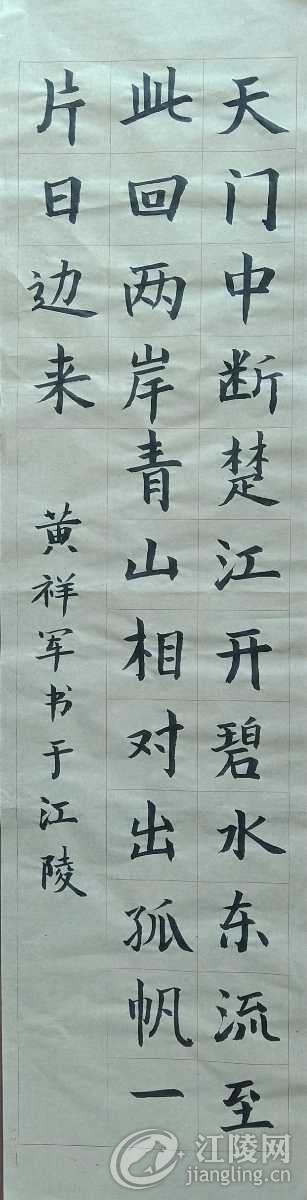 天门中断楚江开碧水东流至
此回两岸青山相对出孤帆一
片日边来
黄祥军书于江陵
江陵网
jiangling.cn